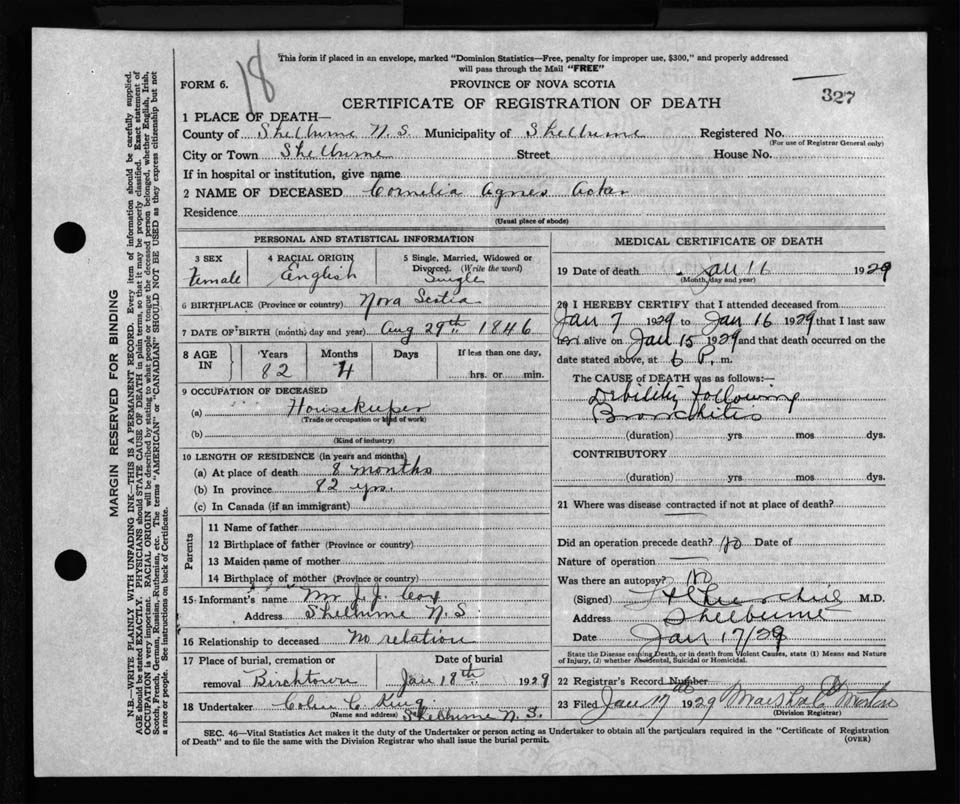 This form if placed in an envelope, marked "Dominion Statistics—Free, penalty for improper use, $300," and properly addressed
will pass through the Mail "FREE"
18
FORM 6.
PROVINCE OF NOVA SCOTIA
327
CERTIFICATE OF REGISTRATION OF DEATH
1 PLACE OF DEATH—
County of Shelburne N.S. Municipality of Shelburne Registered No.
(For use of Registrar General only)
City or Town Shelburne Street House No.
If in hospital or institution, give name
2 NAME OF DECEASED Cornelia Agnes Acker
Residence
(Usual place of abode)
PERSONAL AND STATISTICAL INFORMATION
3 SEX Female
4 RACIAL ORIGIN English
5 Single, Married, Widowed or
Divorced. (Write the word)
Single
6 BIRTHPLACE (Province or country) Nova Scotia
7 DATE OF BIRTH (month, day and year) Aug 29th 1846
8 AGE IN Years 82 Months 4 Days
If less than one day,
hrs. or min.
9 OCCUPATION OF DECEASED
(a) Housekeeper
(Trade or occupation or kind of work)
(b)
(Kind of industry)
10 LENGTH OF RESIDENCE (in years and months)
(a) At place of death 8 months
(b) In province 82 yrs.
(c) In Canada (if an immigrant)
Parents
11 Name of father
12 Birthplace of father (Province or country)
13 Maiden name of mother
14 Birthplace of mother (Province or country)
15 Informant's name Mr J. J. Cox
Address Shelburne N.S.
16 Relationship to deceased No relation
17 Place of burial, cremation or
removal Birchtown
Date of burial
Jan 18th 1929
18 Undertaker Colin C King
(Name and address) Shelburne N.S.
MEDICAL CERTIFICATE OF DEATH
19 Date of death Jan 16 1929
(Month, day and year)
20 I HEREBY CERTIFY that I attended deceased from
Jan 7 1929 to Jan 16 1929 that I last saw
alive on Jan 15 1929 and that death occurred on the
date stated above, at 6 P. m.
The CAUSE OF DEATH was as follows:—
Debility following
Bronchitis
(duration) yrs mos dys.
CONTRIBUTORY
(duration) yrs mos dys.
21 Where was disease contracted if not at place of death?
Did an operation precede death? No Date of
Nature of operation
Was there an autopsy? No
(Signed) M.D.
Address Shelburne
Date Jan 17/29
State the Disease causing Death, or in death from Violent Causes, state (1) Means and Nature
of Injury, (2) whether Accidental, Suicidal or Homicidal.
22 Registrar's Record Number
23 Filed Jan 17th 1929
(Division Registrar)
SEC. 46—Vital Statistics Act makes it the duty of the Undertaker or person acting as Undertaker to obtain all the particulars required in the "Certificate of Registration
of Death" and to file the same with the Division Registrar who shall issue the burial permit.
(OVER)
MARGIN RESERVED FOR BINDING
N.B.—WRITE PLAINLY WITH UNFADING INK—THIS IS A PERMANENT RECORD. Every item of information should be carefully supplied.
AGE should be stated EXACTLY. PHYSICIANS should STATE CAUSE OF DEATH in plain terms, so that it may be properly classified. Exact statement of
OCCUPATION is very important. RACIAL ORIGIN will be described by stating to what people or tongue the deceased person belonged, whether English, Irish,
Scotch, French, German, Russian, Ruthenian, etc. The terms "AMERICAN" or "CANADIAN" SHOULD NOT BE USED as they express citizenship but not
a race or people. See instructions on back of Certificate.